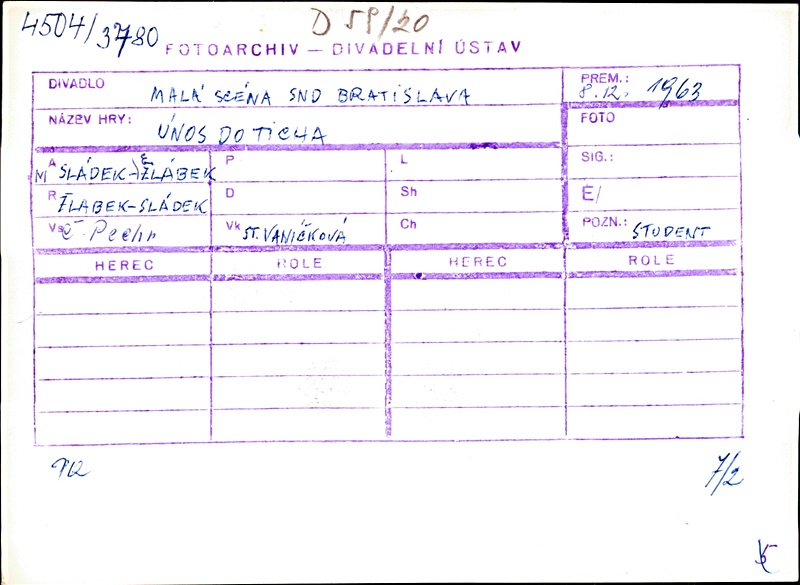 4504/3780
D 59/20
FOTOARCHIV — DIVADELNÍ ÚSTAV
DIVADLO MALÁ SCÉNA SND BRATISLAVA
PREM.: 8.12. 1963
NÁZEV HRY: ÚNOS DO TICHA
FOTO
A M SLÁDEK-ŽLÁBEK
P
L
SIG.:
R ŽLABEK-SLÁDEK
D
Sh
E/
Vs Č. Pechr
Vk ST. VANÍČKOVÁ
Ch
POZN.: STUDENT
HEREC ROLE HEREC ROLE
7/2